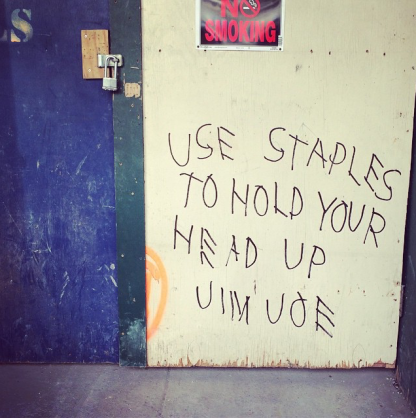 S
NO
SMOKING
USE STAPLES
TO HOLD YOUR
HEAD UP
JIM JOE